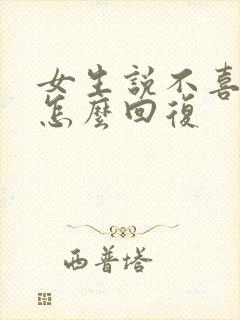 女生說不喜
怎麼回復
西普塔